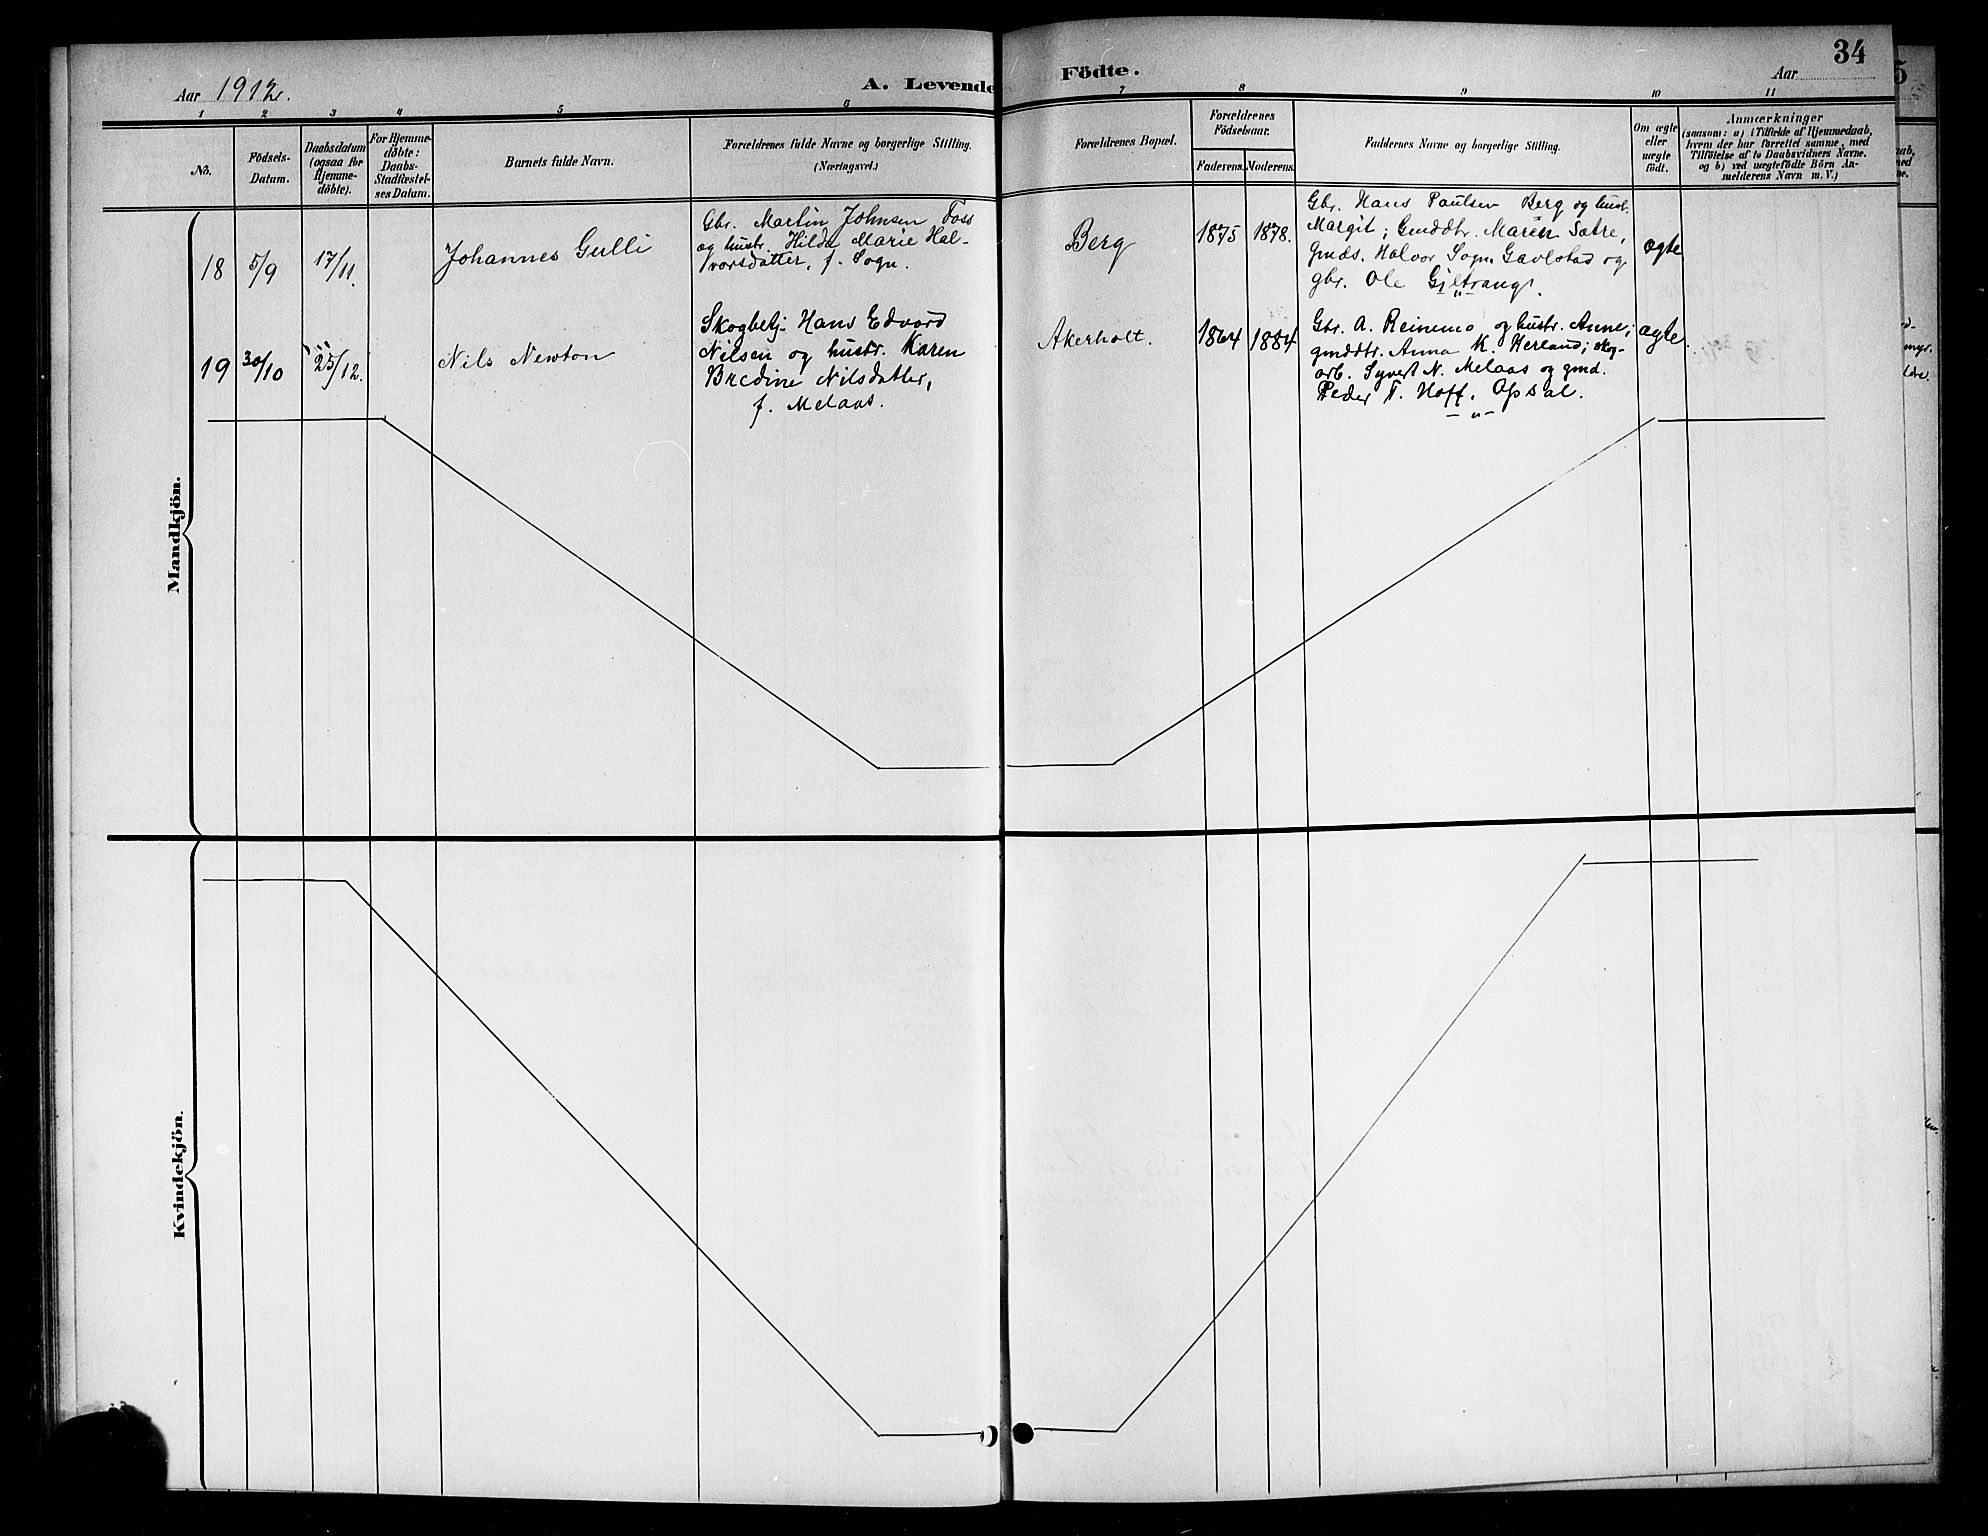 34
Aar 1912.
A. Levende Födte.
Aar
1 2 3 4 5 6 7 8 9 10 11
No.
Födsels-
Datum.
Daabsdatum
(ogsaa for
Hjemme-
döbte).
For Hjemme-
döbte:
Daabs-
Stadfæstel-
ses Datum.
Barnets fulde Navn.
Forældrenes fulde Navne og borgerlige Stilling.
(Næringsvei.)
Forældrenes Bopæl.
Forældrenes
Födselsaar.
Faderens. Moderens.
Faddernes Navne og borgerlige Stilling.
Om ægte
eller
uægte
födt.
Anmærkninger
(saasom: a) i Tilfælde af Hjemmedaab,
hvem der har forrettet samme, med
Tilföielse af to Daabsvidners Navne.
og b) ved uægtefödte Börn An-
melderens Navn m. V.)
Mandkjön.
18
5/9
17/11.
Johannes Gulli
Gbr. Martin Johnsen Foss
og hustr. Hilda Marie Hal-
vorsdatter, f. Sogn.
Berg
1875
1878.
Gbr. Hans Paulsen Berg og hust.
Margit; Gmddtr. Maren Sætre,
Gmds. Halvor Sogn, Gavlstad og
gbr. Ole
ægte
19
30/10
25/12.
Nils Newton
Skogbetj. Hans Edvard
Nilsen og hustr. Karen
Bredine Nilsdatter,
f. Melaas.
Akerholt.
1864
1884.
Gbr. A. Reinemo og hustr. Anne;
gmddtr. Anna K. Herland; skog-
arb. Syvert N. Melaas og gmd.
Peder T. Hoff. Opsal.
— „ —
ægte.
Kvindekjön.